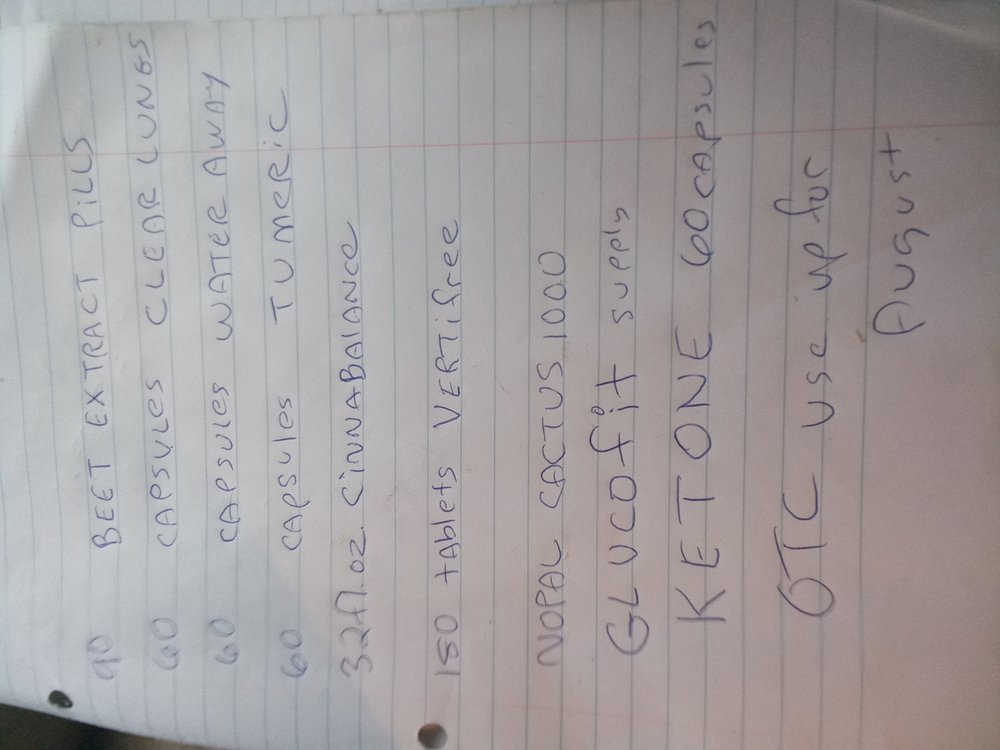 90 BEET EXTRACT PiLLS
60 CAPSULES CLEAR LUNGS
60 CAPSULES WATER AWAY
60 CAPSULES TUMERIC
32fl.oz. CiNNABALANCE
180 tablets VERTifree
NOPAL CACTUS 1000
GLUCOfit supply
KETONE 60 CAPSULES
OTC use up for
August